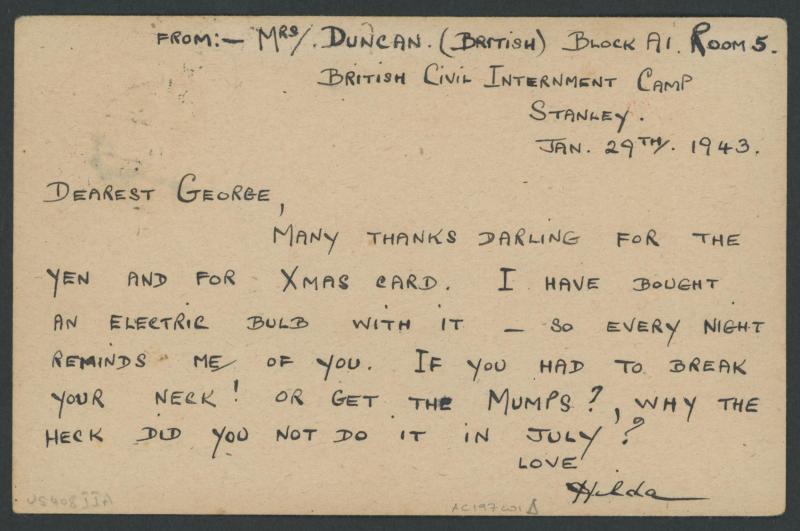 FROM:- MRS/. DUNCAN. (BRITISH) BLOCK A1. ROOM 5.
BRITISH CIVIL INTERNMENT CAMP
STANLEY.
JAN. 29TH/. 1943.
DEAREST GEORGE,
MANY THANKS DARLING FOR THE
YEN AND FOR XMAS CARD. I HAVE BOUGHT
AN ELECTRIC BULB WITH IT – SO EVERY NIGHT
REMINDS ME OF YOU. IF YOU HAD TO BREAK
YOUR NECK! OR GET THE MUMPS?, WHY THE
HECK DID YOU NOT DO IT IN JULY?
LOVE
Hilda